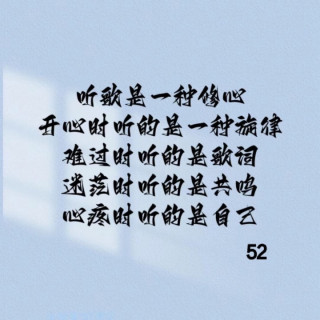 听歌是一种修心
开心时听的是一种旋律
难过时听的是歌词
迷茫时听的是共鸣
心疼时听的是自己
52